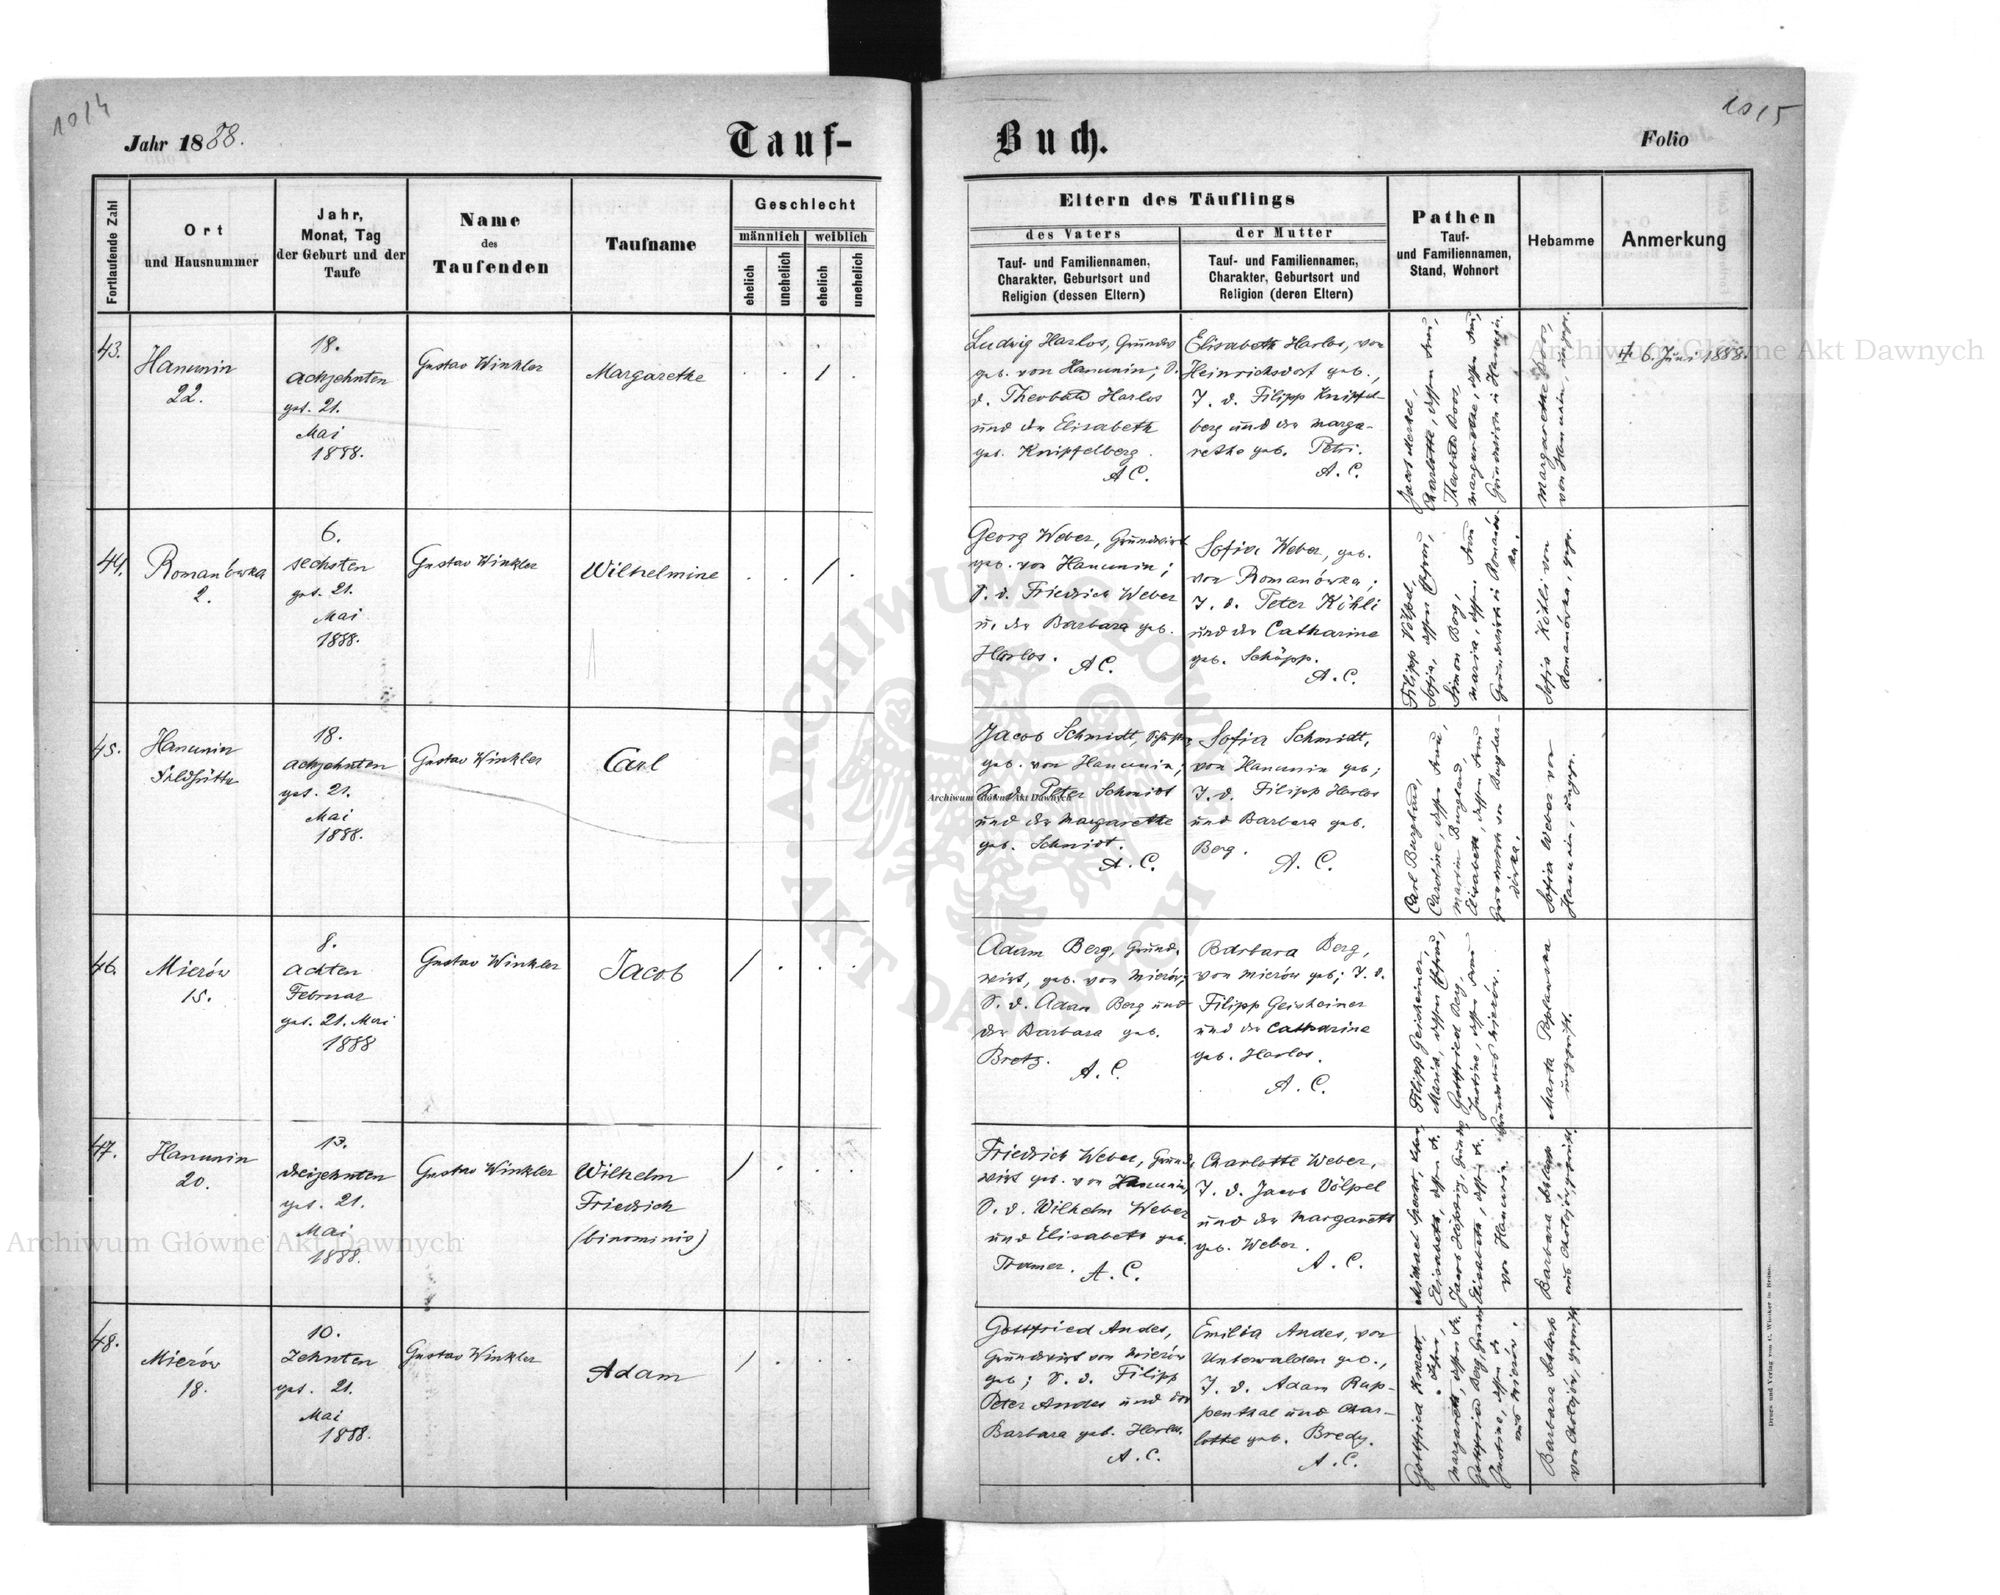 1014
Jahr 1888.
Tauf-
Fortlaufende Zahl
Ort
und Hausnummer
Jahr,
Monat, Tag
der Geburt und der
Taufe
Name
des
Taufenden
Taufname
Geschlecht
männlich
weiblich
ehelich
unehelich
ehelich
unehelich
43.
Hanunin
22.
18.
achzehnten
get. 21.
Mai
1888.
Gustav Winkler
Margarethe
44.
Romanówka
2.
6.
sechsten
get. 21.
Mai
1888.
Gustav Winkler
Wilhelmine
45.
Hanunin
Waldhütte
18.
achzehnten
get. 21.
Mai
1888.
Gustav Winkler
Carl
46.
Mierów
15.
8.
achten
Februar
get. 21. Mai
1888
Gustav Winkler
Jacob
47.
Hanunin
20.
13.
dreizehnten
get. 21.
Mai
1888.
Gustav Winkler
Wilhelm
Friedrich
(binominis)
48.
Mierów
18.
10.
zehnten
get. 21.
Mai
1888.
Gustav Winkler
Adam
1015
Buch.
Folio
Eltern des Täuflings
des Vaters
der Mutter
Tauf- und Familiennamen,
Charakter, Geburtsort und
Religion (dessen Eltern)
Tauf- und Familiennamen,
Charakter, Geburtsort und
Religion (deren Eltern)
Pathen
Tauf-
und Familiennamen,
Stand, Wohnort
Hebamme
Anmerkung
Ludwig Harlos, Grundw
geb. von Hanunin; S.
d. Theobald Harlos
und der Elisabeth
geb. Knipfelberg.
A C.
Elisabeth Harlos, von
Heinrichsdorf geb.,
T. d. Filipp Knipfel-
berg und der Marga-
rethe geb. Petri.
A. C.
Jacob Merkel,
Charlotte, dessen Frau,
Theobald Doos,
Margarethe, dessen Frau,
Grundwirte in Hanunin.
Margarethe Doos,
von Hanunin, ungepr.
6. Juni 1888.
Georg Weber, Grundwirt
geb. von Hanunin;
S. d. Friedrich Weber
u. der Barbara geb.
Harlos. A C.
Sofia Weber, geb.
von Romanówka;
T. d. Peter Köhli
und der Catharine
geb. Schöpp.
A. C.
Filipp Völpel,
Sofia, dessen Ehefrau,
Simon Berg,
Maria, dessen Frau
Grundwirte in Romanów-
ka.
Sofia Köhli von
Romanówka, ungepr.
Jacob Schmidt,
geb. von Hanunin;
S. d. Peter Schmidt
und der Margarethe
geb. Schmidt.
A. C.
Sofia Schmidt,
von Hanunin geb;
T. d. Filipp Harlos
und Barbara geb.
Berg.
A. C.
Carl Burghard,
Caroline, dessen Frau,
Martin Burghard,
Elisabeth, dessen Frau
Sofia Weber von
Hanunin, ungepr.
Adam Berg, Grund-
wirt, geb. von Mierów;
S. d. Adam Berg und
der Barbara geb.
Bretz. A. C.
Barbara Berg,
von Mierów geb; T. d.
Filipp Geisheiner
und der Catharine
geb. Harlos.
A. C.
Filipp Geisheiner,
Maria, dessen Ehefrau,
Gottfried Berg,
Justine, dessen Frau
Grundwirte Mierów.
Marta Poplawska
ungeprüft.
Friedrich Weber, Grund-
wirt geb. von Hanunin,
S. d. Wilhelm Weber
und Elisabeth geb.
Tramer. A. C.
Charlotte Weber,
T. d. Jacob Völpel
und der Margareth
geb. Weber.
A. C.
von Hanunin.
aus Chołojów, geprüft.
Gottfried Andes,
Grundwirt von Mierów
geb; S. d. Filipp
Peter Andes und der
Barbara geb. Harlos.
A. C.
Emilia Andes, von
Unterwalden geb.,
T. d. Adam Rup-
penthal und Char-
lotte geb. Bredy.
A. C.
Gottfried Knecht,
Margareth, dessen Fr.
Gottfried Berg, Grundw
Justine, dessen Fr
aus Mierów.
von Chołojów, geprüft
Druck und Verlag von C. Winiker in Brünn.
Archiwum Główne Akt Dawnych
Archiwum Główne Akt Dawnych
Archiwum Główne Akt Dawnych
ARCHIWUM GŁÓWNE AKT DAWNYCH